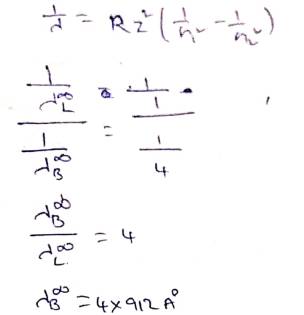 1/λ = RZ² (1/n₁² - 1/n₂²)
(1/λ_L^∞) / (1/λ_B^∞) = (1/1) / (1/4)
λ_B^∞ / λ_L^∞ = 4
λ_B^∞ = 4×912 A°